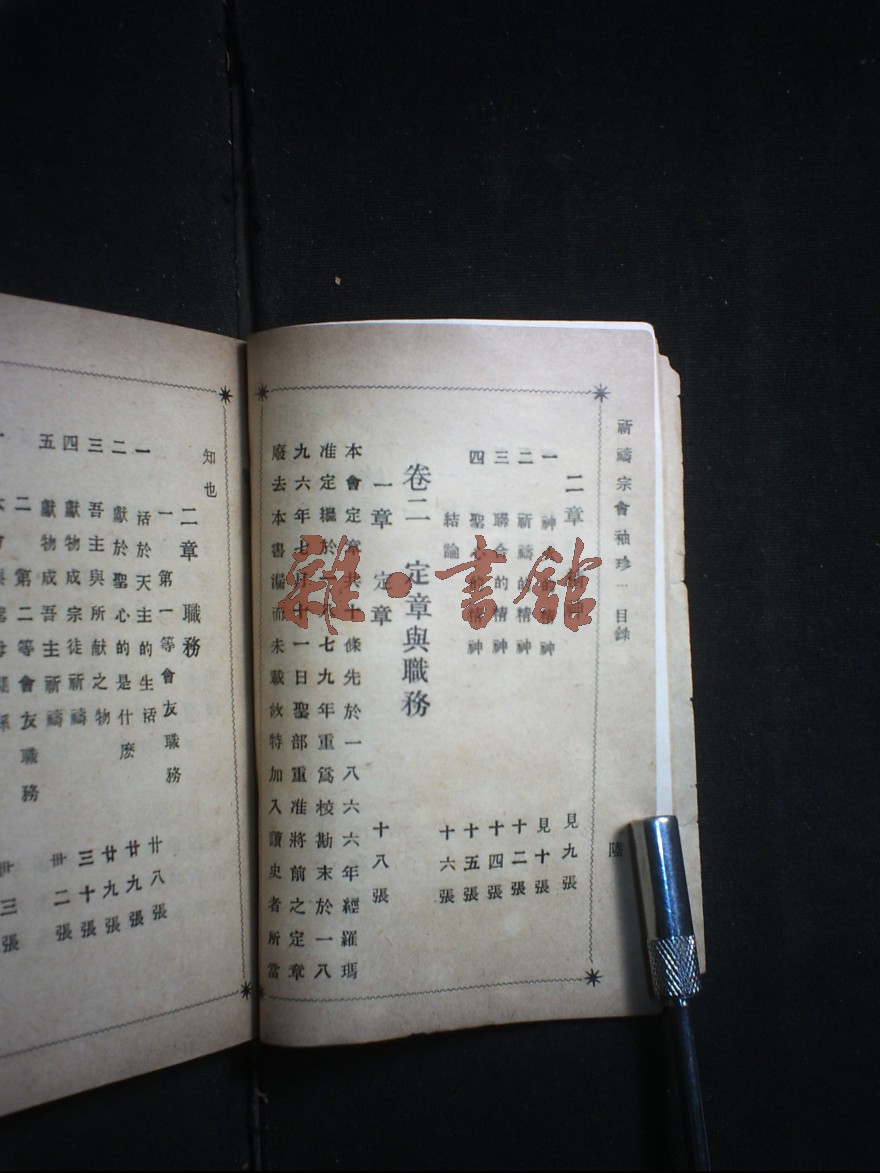 祈禱宗會袖珍 目錄
陸
二章 精神 見九張
一 神火的精神 見十張
二 祈禱的精神 十二張
三 聯合的精神 十四張
四 聖心的精神 十五張
結論 十六張
卷二 定章與職務
一章 定章 十八張
本會定章共十條先於一八六六年經羅瑪
准定繼於一八七九年重爲校勘末於一八
九六年七月十一日聖部重准將前之定章
廢去本書漏而未載故特加入讀史者所當
知也
二章 職務
一 第一等會友職務 廿八張
一 活於天主的生活 廿九張
二 獻於聖心的是什麽 廿九張
三 吾主與所獻之物 三十張
四 獻物成宗徒祈禱
五 獻物成吾主祈禱 卅二張
二 第二等會友職務 卅三張
雜·書館